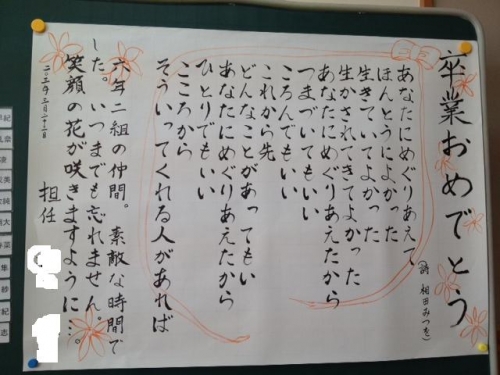 卒業おめでとう
(詩 相田みつを)
あなたにめぐりあえて
ほんとうによかった
生きていてよかった
生かされてきてよかった
あなたにめぐりあえたから
つまづいてもいい
ころんでもいい
これから先
どんなことがあってもいい
あなたにめぐりあえたから
ひとりでもいい
こころから
そういってくれる人があれば
六年二組の仲間。素敵な時間で
した。いつまでも忘れません。
笑顔の花が咲きますように…。
担任